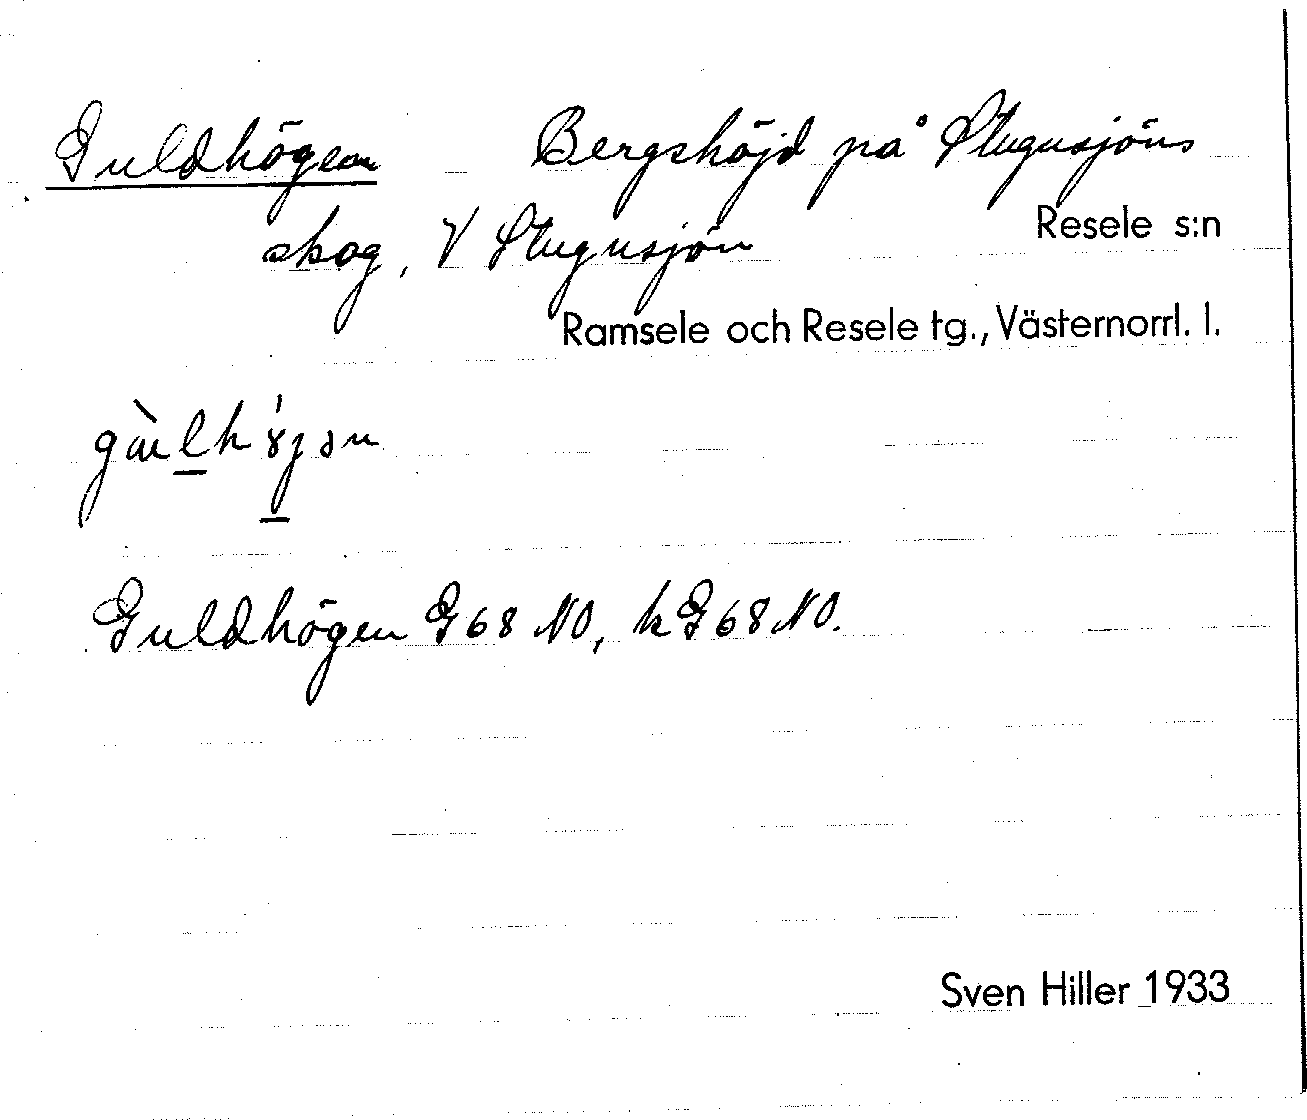 Guldhögen Bergshöjd på Stugusjöns
Resele s:n
skog, V Stugusjön
Ramsele och Resele tg., Västernorrl. l.
Guldhögen G68 NO, kG68NO.
Sven Hiller 1933